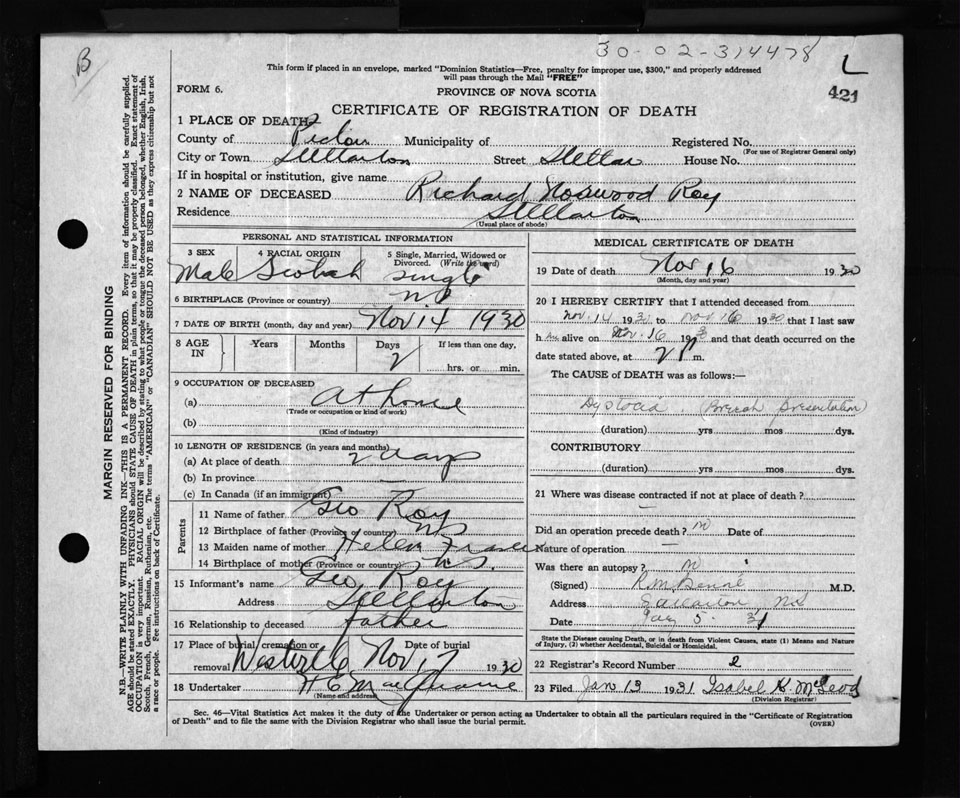 30-02-314478
B
L
This form if placed in an envelope, marked "Dominion Statistics—Free, penalty for improper use, $300," and properly addressed
will pass through the Mail "FREE"
421
FORM 6.
PROVINCE OF NOVA SCOTIA
CERTIFICATE OF REGISTRATION OF DEATH
1 PLACE OF DEATH
County of Pictou Municipality of Registered No.
(For use of Registrar General only)
City or Town Stellarton Street Stellar House No.
If in hospital or institution, give name
2 NAME OF DECEASED Richard Norwood Roy
Residence Stellarton
(Usual place of abode)
PERSONAL AND STATISTICAL INFORMATION
3 SEX 4 RACIAL ORIGIN 5 Single, Married, Widowed or Divorced. (Write the word)
Male Scotch single
6 BIRTHPLACE (Province or country) NS
7 DATE OF BIRTH (month, day and year) Nov 14 1930
8 AGE IN Years Months Days If less than one day,
2
hrs. or min.
9 OCCUPATION OF DECEASED
(a) at home
(Trade or occupation or kind of work)
(b)
(Kind of industry)
10 LENGTH OF RESIDENCE (in years and months)
(a) At place of death 2 days
(b) In province —
(c) In Canada (if an immigrant)
Parents
11 Name of father Geo Roy
12 Birthplace of father (Province or country) NS
13 Maiden name of mother Helen Fraser
14 Birthplace of mother (Province or country) N.S.
15 Informant's name Geo Roy
Address Stellarton
16 Relationship to deceased father
17 Place of burial, cremation or removal Date of burial
Nov 17 1930
18 Undertaker H E
(Name and address)
MEDICAL CERTIFICATE OF DEATH
19 Date of death Nov 16 1930
(Month, day and year)
20 I HEREBY CERTIFY that I attended deceased from
Nov. 14 1930 to Nov 16 1930 that I last saw
h alive on Nov. 16 193 and that death occurred on the
date stated above, at 2 P m.
The CAUSE OF DEATH was as follows:—
Dystocia. Breech presentation
(duration) yrs mos dys.
CONTRIBUTORY
(duration) yrs mos dys.
21 Where was disease contracted if not at place of death?
—
Did an operation precede death? no Date of
Nature of operation —
Was there an autopsy? no
(Signed) M.D.
Address Stellarton, NS
Date 5. 31
State the Disease causing Death, or in death from Violent Causes, state (1) Means and Nature
of Injury, (2) whether Accidental, Suicidal or Homicidal.
22 Registrar's Record Number 2
23 Filed Jan 13 1931 Isabel K. McLeod
(Division Registrar)
Sec. 46—Vital Statistics Act makes it the duty of the Undertaker or person acting as Undertaker to obtain all the particulars required in the "Certificate of Registration
of Death" and to file the same with the Division Registrar who shall issue the burial permit.
(OVER)
MARGIN RESERVED FOR BINDING
N.B.—WRITE PLAINLY WITH UNFADING INK—THIS IS A PERMANENT RECORD. Every item of information should be carefully supplied.
AGE should be stated EXACTLY. PHYSICIANS should STATE CAUSE OF DEATH in plain terms, so that it may be properly classified. Exact statement of
OCCUPATION is very important. RACIAL ORIGIN will be described by stating to what people or tongue the deceased person belonged, whether English, Irish,
Scotch, French, German, Russian, Ruthenian, etc. The terms "AMERICAN" or "CANADIAN" SHOULD NOT BE USED as they express citizenship but not
a race or people. See instructions on back of Certificate.